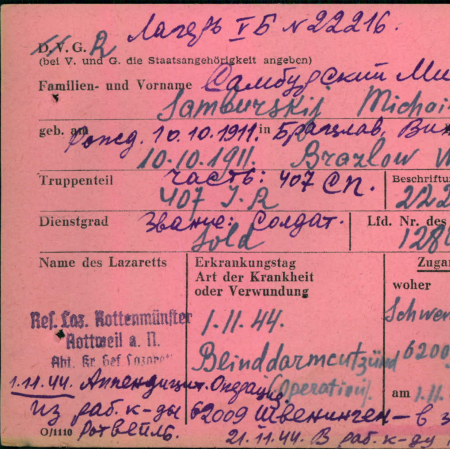 Лагерь V Б N 22216.
D. V. G. R
(bei V. und G. die Staatsangehörigkeit angeben)
Familien- und Vorname Самбурский Ми
Samburskij Michai
geb. am Рожд. 10.10.1911. in Брацлав, Вин
10.10.1911. Brazlow W
Truppenteil часть: 407 СП. Beschriftun
407 I.R 222
Dienstgrad Звание: Солдат. Lfd. Nr. des
Sold 128
Name des Lazaretts Erkrankungstag Zugan
Art der Krankheit woher
oder Verwundung Schwen
Res. Laz. Rottenmünster 1.11.44. 6200
Rottweil a. N.
Abt. Kr. Gef. Lazarett Blinddarmentzünd am 1.11.
(Operation)
1.11.44. Аппендицит. Операция
из раб. к-ды 62009 Швенинген – в
O/1110 Ротвейль. 21.11.44. В раб. к-ду